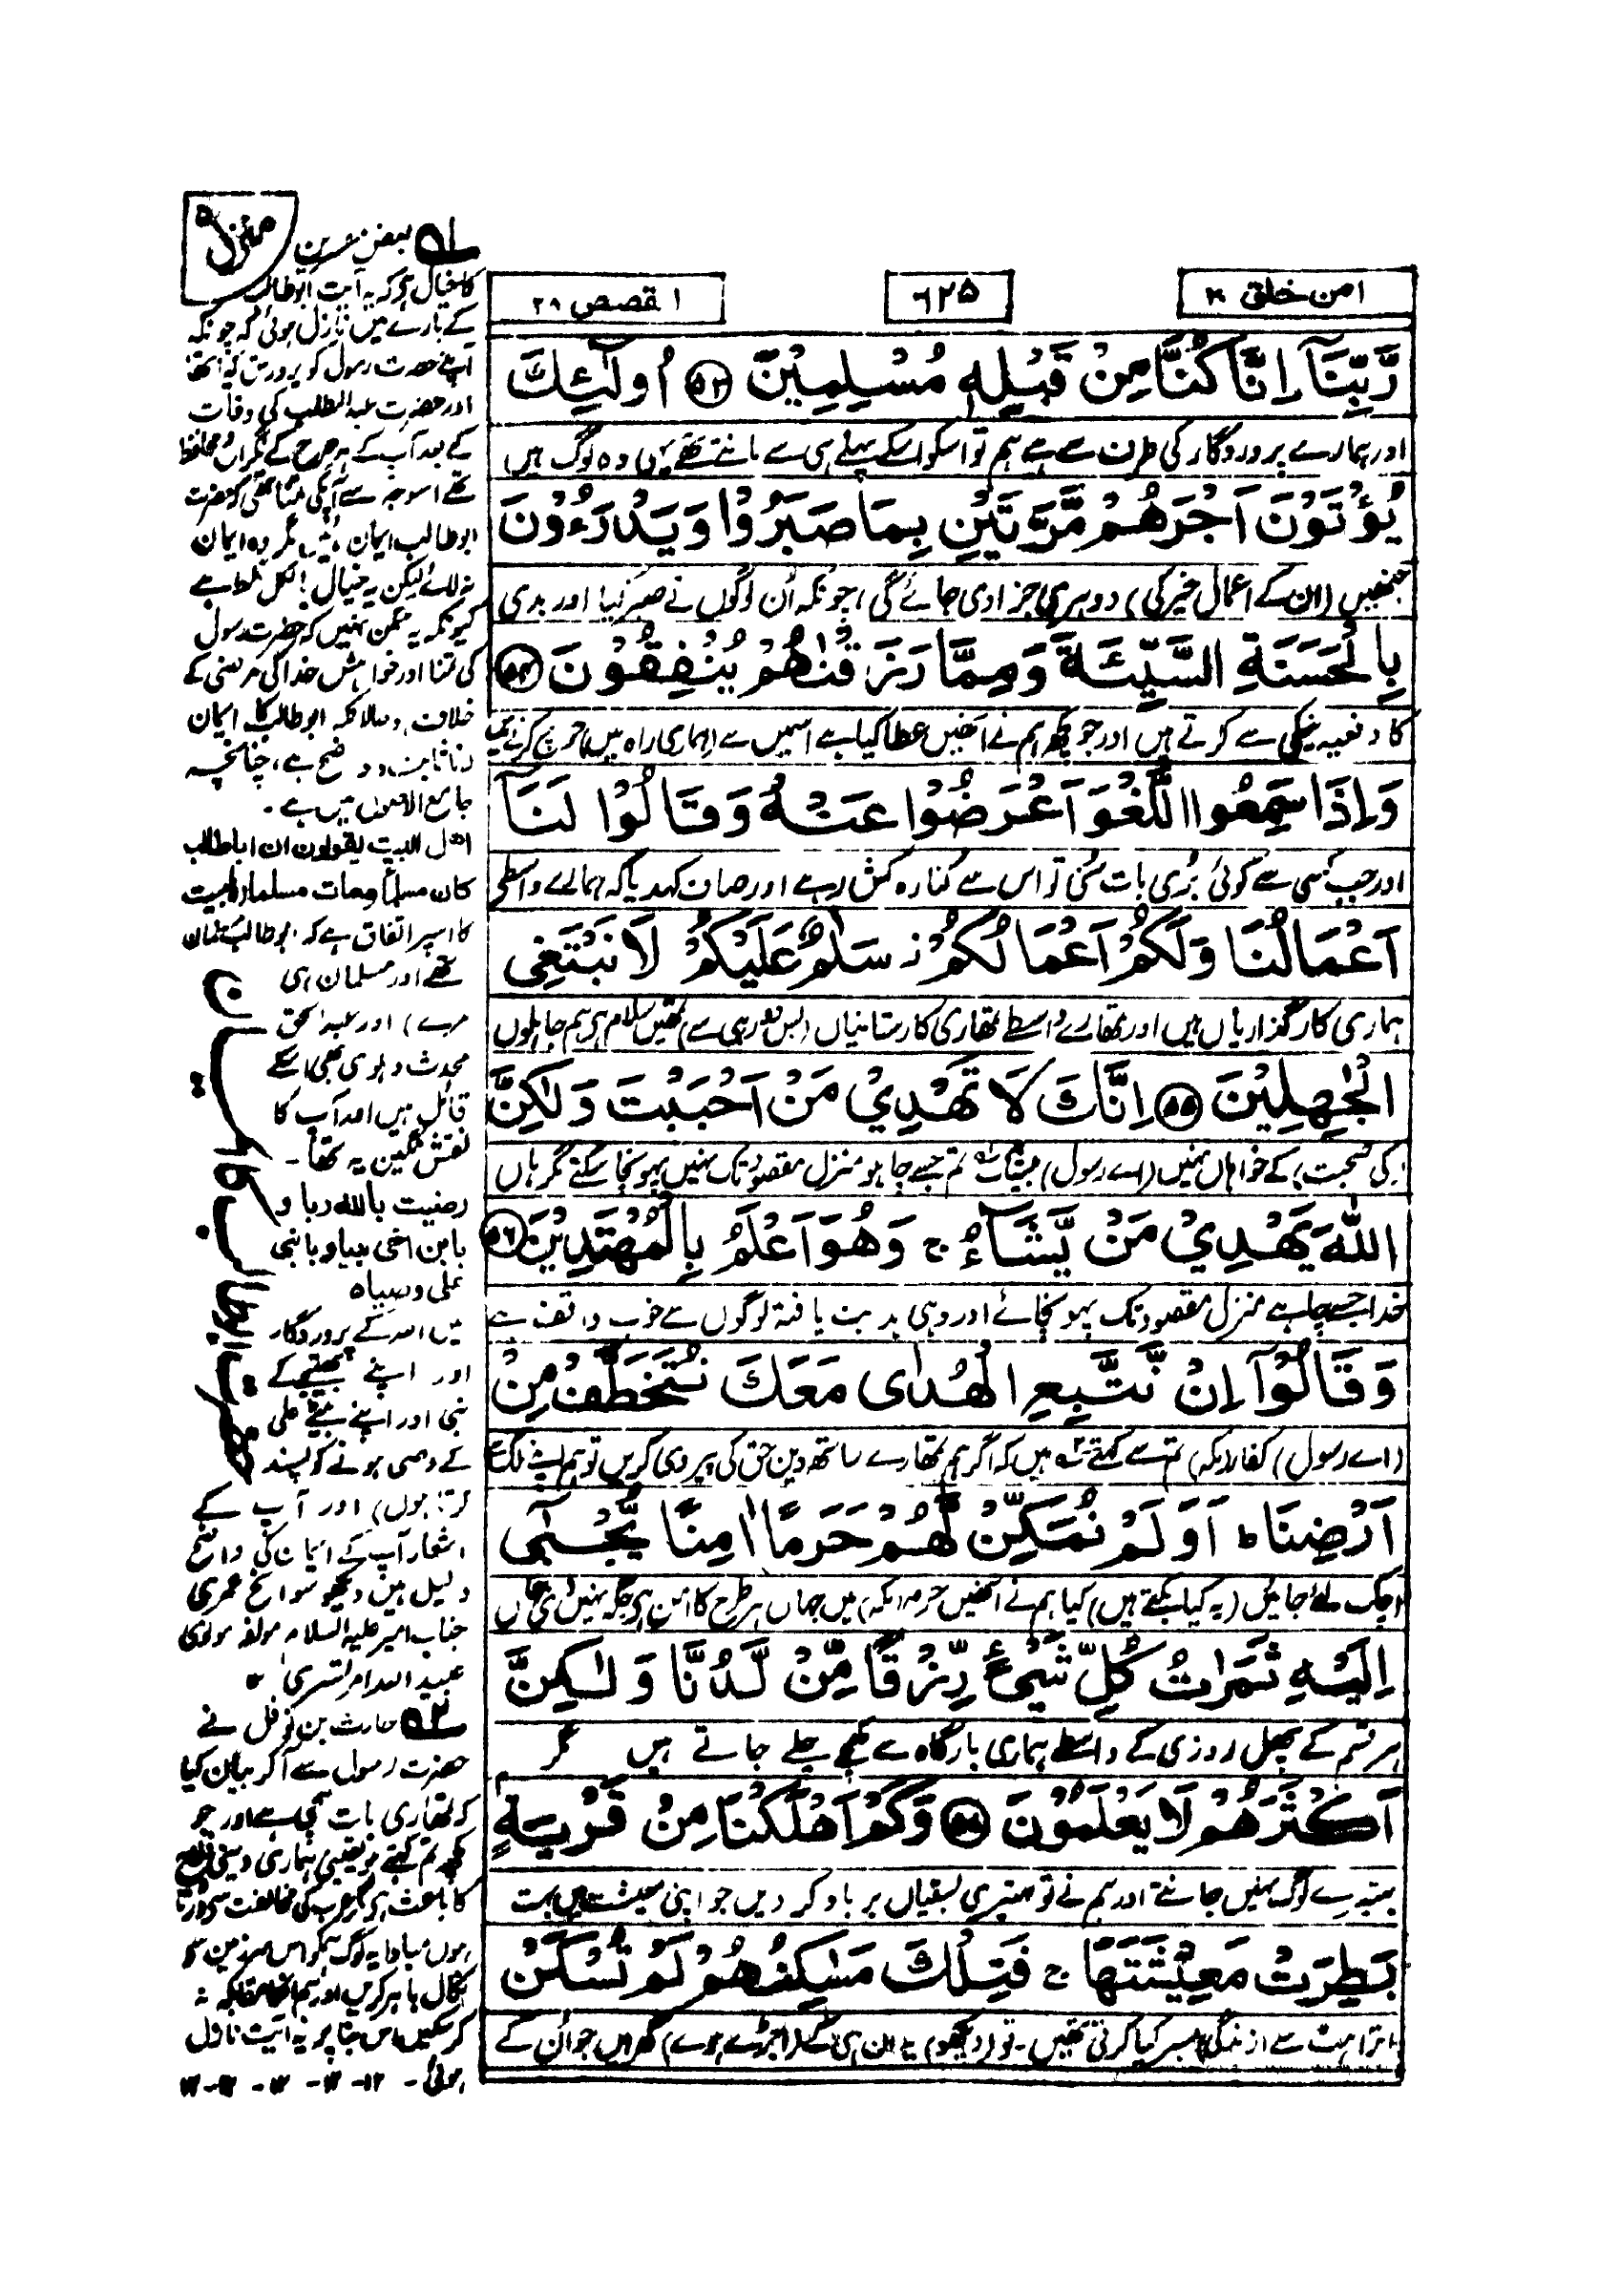 امن خلق ۲۰
۶۲۵
القصص ۲۸
رَّبِّنَآ اِنَّا كُنَّا مِنْ قَبْلِهٖ مُسْلِمِيْنَ ﴿۵۳﴾ اُولٰٓئِكَ
اور ہمارے پروردگار کی طرف سے ہے ہم تو اسکو اسکے پہلے ہی سے مانتے تھے یہی وہ لوگ ہیں
يُؤْتَوْنَ اَجْرَهُمْ مَّرَّتَيْنِ بِمَا صَبَرُوْا وَيَدْرَءُوْنَ
جنھیں (ان کے اعمال خیر کی) دوہری جزا دی جائے گی، چونکہ اُن لوگوں نے صبر کیا اور بدی
بِالْحَسَنَةِ السَّيِّئَةَ وَمِمَّا رَزَقْنٰهُمْ يُنْفِقُوْنَ ﴿۵۴﴾
کا دفعیہ نیکی سے کرتے ہیں اور جو کچھ ہم نے انھیں عطا کیا ہے اسمیں سے (ہماری راہ میں) خرچ کرتے ہیں
وَاِذَا سَمِعُوا اللَّغْوَ اَعْرَضُوْا عَنْهُ وَقَالُوْا لَنَآ
اور جب کسی سے کوئی بُری بات سُنی تو اس سے کنارہ کش رہے اور صاف کہدیا کہ ہمارے واسطے
اَعْمَالُنَا وَلَكُمْ اَعْمَالُكُمْ ز سَلٰمٌ عَلَيْكُمْ لَا نَبْتَغِي
ہماری کارگزاریاں ہیں اور تمھارے واسطے تمھاری کارستانیاں (بس دور ہی سے) تمھیں سلام ہے ہم جاہلوں
الْجٰهِلِيْنَ ﴿۵۵﴾ اِنَّكَ لَا تَهْدِيْ مَنْ اَحْبَبْتَ وَلٰكِنَّ
(کی صحبت) کے خواہاں نہیں (اے رسول) بیشک تم جسے چاہو منزل مقصود تک نہیں پہونچا سکتے مگر ہاں
اللّٰهَ يَهْدِيْ مَنْ يَّشَآءُ ج وَهُوَ اَعْلَمُ بِالْمُهْتَدِيْنَ ﴿۵۶﴾
خدا جسے چاہے منزل مقصود تک پہونچائے اور وہی ہدایت یافتہ لوگوں سے خوب واقف ہے
وَقَالُوْٓا اِنْ نَّتَّبِعِ الْهُدٰى مَعَكَ نُتَخَطَّفْ مِنْ
(اے رسول) کفار (مکہ) تم سے کہتے ہیں کہ اگر ہم تمھارے ساتھ دین حق کی پیروی کریں تو ہم اپنے ملک سے
اَرْضِنَا ط اَوَلَمْ نُمَكِّنْ لَّهُمْ حَرَمًا اٰمِنًا يُّجْبٰٓى
اچک لئے جائیں (یہ کیا بکتے ہیں) کیا ہم نے انھیں حرم (مکہ) میں جہاں ہر طرح کا امن ہے جگہ نہیں دی وہاں
اِلَيْهِ ثَمَرٰتُ كُلِّ شَيْءٍ رِّزْقًا مِّنْ لَّدُنَّا وَلٰكِنَّ
ہر قسم کے پھل روزی کے واسطے ہماری بارگاہ سے کھنچے چلے جاتے ہیں مگر
اَكْثَرَهُمْ لَا يَعْلَمُوْنَ ﴿۵۷﴾ وَكَمْ اَهْلَكْنَا مِنْ قَرْيَةٍۭ
بہتیرے لوگ نہیں جانتے اور ہم نے تو بہتیری بستیاں برباد کر دیں جو اپنی معیشت میں بہت
بَطِرَتْ مَعِيْشَتَهَا ج فَتِلْكَ مَسٰكِنُهُمْ لَمْ تُسْكَنْ
اتراہٹ سے (زندگی) بسر کیا کرتی تھیں۔ تو (دیکھو) یہ ان ہی کے (اجڑے ہوئے) گھر ہیں جو اُن کے
منزل ۵
۱ بعض مفسرین
کا خیال ہے کہ یہ آیت ابو طالب
کے بارے میں نازل ہوئی کہ چونکہ
آپنے حضرت رسول کو پرورش کیا تھا
اور حضرت عبد المطلب کی وفات
کے بعد آپ کے ہر طرح کے نگراں و محافظ
تھے اسوجہ سے آپکی تمنا تھی کہ حضرت
ابو طالب ایمان لائیں مگر وہ ایمان
نہ لائے لیکن یہ خیال بالکل غلط ہے
کیونکہ یہ ممکن نہیں کہ حضرت رسول
کی تمنا اور خواہش خدا کی مرضی کے
خلاف ہو حالانکہ ابو طالب کا ایمان
لانا ثابت و واضح ہے، چنانچہ
جامع الاصول میں ہے۔
اهل البيت يقولون ان اباطالب
كان مسلما ومات مسلما (اہلبیت
کا اسپر اتفاق ہے کہ ابو طالب مسلمان
تھے اور مسلمان ہی
مرے) اور عبد الحق
محدث دہلوی بھی اسکے
قائل ہیں اور آپ کا
نقش نگین یہ تھا۔
رضيت بالله ربا و
بابن اخي نبيا و بابني
علي وصيا ہ
میں اللہ کے پروردگار
اور اپنے بھتیجے کے
نبی اور اپنے بیٹے علی
کے وصی ہونے کو پسند
کرتا ہوں) اور آپ کے
اشعار آپ کے ایمان کی واضح
دلیل ہیں دیکھو سوانح عمری
جناب امیر علیہ السلام مولفہ مولوی
عبید اللہ امرتسری
۲ حارث بن نوفل نے
حضرت رسول سے آکر بیان کیا
کہ تمھاری بات سچی ہے اور جو
کچھ تم کہتے ہو یقینی ہماری دینی
کا باعث ہے مگر عرب کی مخالفت سے ڈرتا
ہوں مبادا یہ لوگ ہمکو اس سرزمین سے
نکال باہر کریں اور ہم انکا مقابلہ نہ
کر سکیں اس بنا پر یہ آیت نازل
ہوئی۔ ۱۲-۱۲-۱۲-۱۲-۱۲